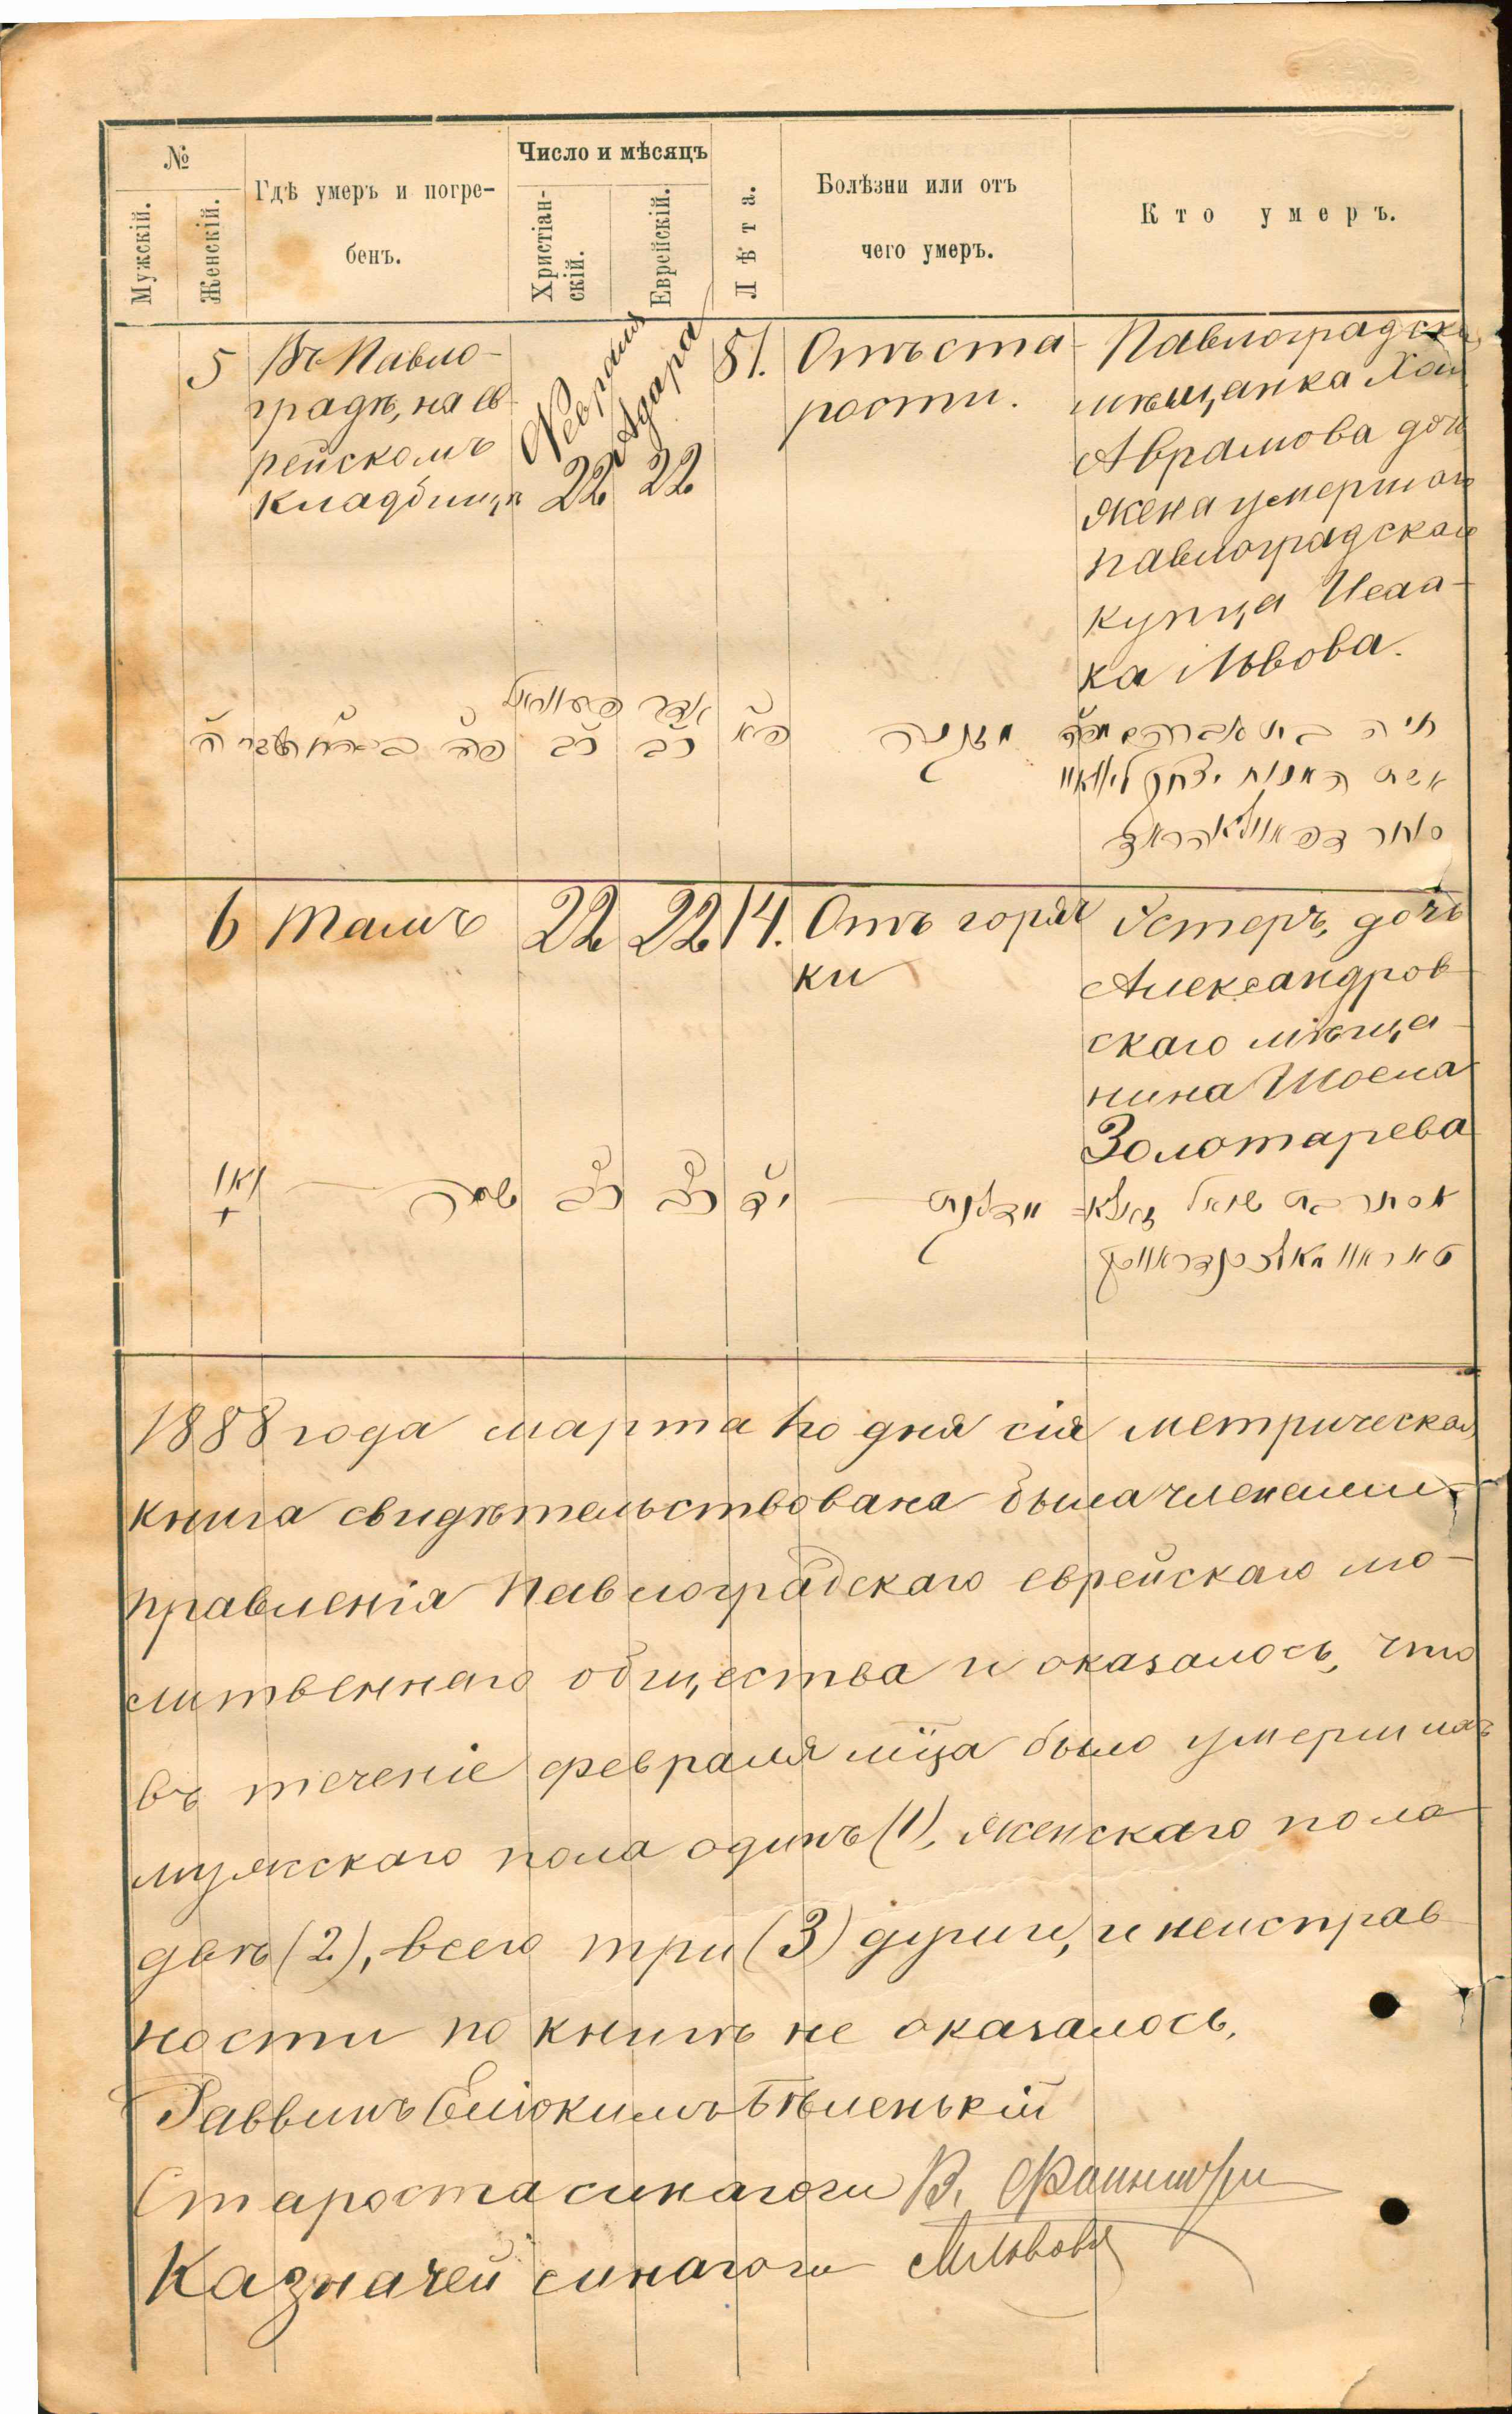 №
Мужскій.
Женскій.
Гдѣ умеръ и погре-
бенъ.
Число и мѣсяцъ
Христіан-
скій.
Еврейскій.
Лѣта.
Болѣзни или отъ
чего умеръ.
Кто умеръ.
5
Въ Павло-
градѣ, на ев-
рейскомъ
кладбищѣ
Февраля
22
Адара
22
81.
Отъ ста-
рости.
Павлоградская
мѣщанка Хая
Аврамова дочь
жена умершаго
павлоградскаго
купца Исаа-
ка Львова.
חיה בת אברהם
אשת המנוח יצחק
סוחר
אדר
כב כב
פא
זקנה
6
Тамъ
22
22
14.
Отъ горяч
ки
Эстеръ, дочь
Александров
скаго мѣща-
нина Шоела
Золотарева
אסתר בת
כב כב
יד
1888 года марта 1го дня сія метрическая
книга свидѣтельствована была членами
правленія Павлоградскаго еврейскаго мо-
литвеннаго общества и оказалось, что
въ теченіе февраля мца было умершихъ
мужскаго пола одинъ (1), женскаго пола
двѣ (2), всего три (3) души, и неисправ
ности по книгѣ не оказалось.
Раввинъ Еліокимъ Бѣленькій
Староста синагоги В.
Казначей синагоги Львовъ